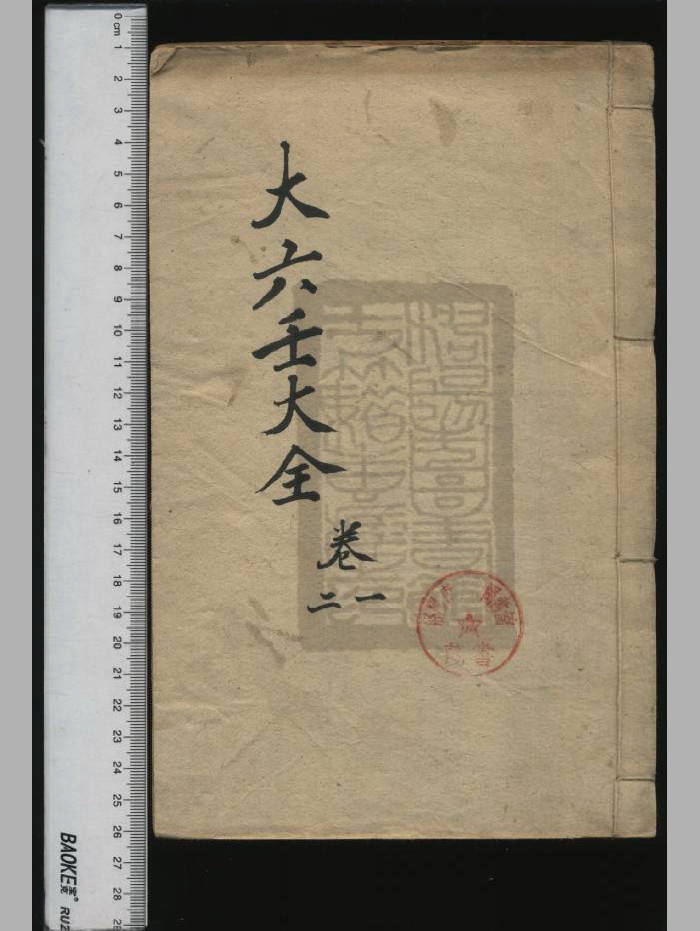 大六壬大全
卷一
二
0 cm
1
2
3
4
5
6
7
8
9
10
11
12
13
14
15
16
17
18
19
20
21
22
23
24
25
26
27
28
BAOKE宝克®